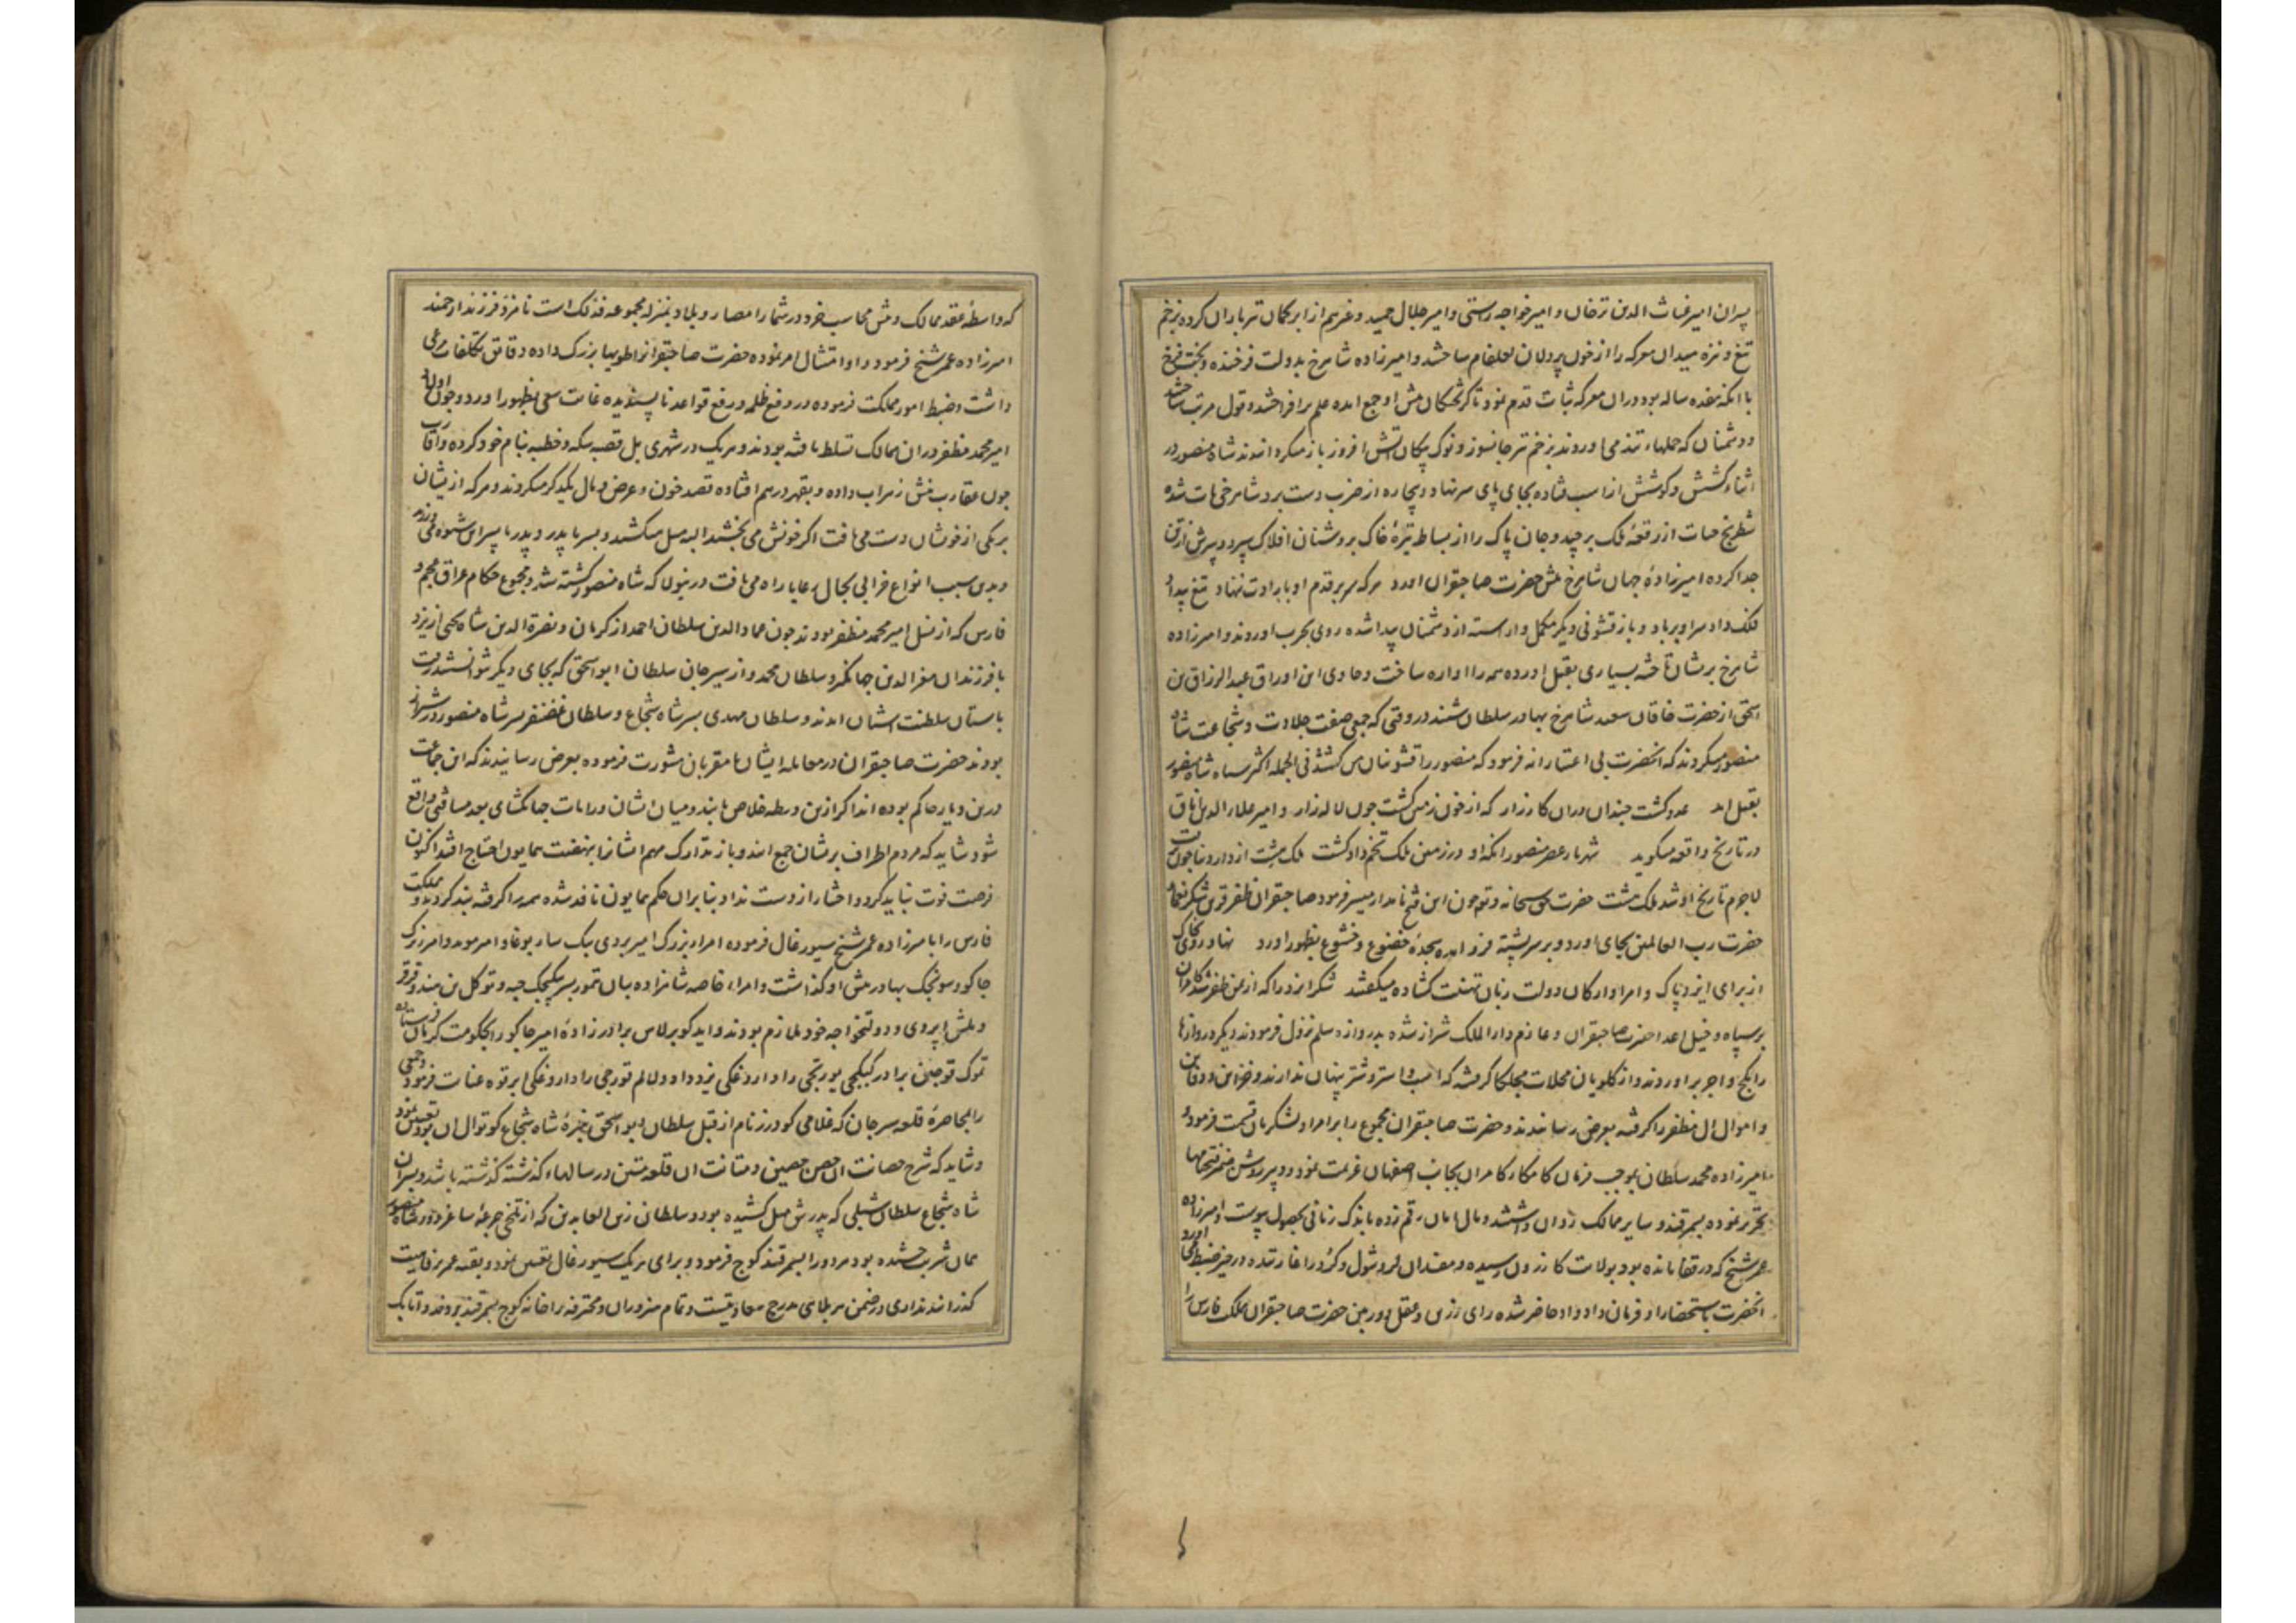 پسران امیر غیاث الدین ترخان و امیر خواجه راستی و امیر جلال حمید و غیرهم از ابر کمان تیر باران کرده بزخم
تیغ و نیزه میدان معرکه را از خون پردلان لعلفام ساختند و امیرزاده شاهرخ بدولت فرخنده و بخت فرخ
با انکه هفده ساله بود دران معرکه ثبات قدم نمود تا کریختکان پیش او جمع امده علم برافراختند و قول مرتب ساختند
و دشمنان که حملهاء تند می اوردند بزخم تیر جانسوز و نوک پیکان اتش افروز باز میکردانیدند شاه منصور در
اثناء کشش و کوشش از اسب فتاده بجای پای سر نهاد و بیچاره از ضرب دست برد شاهرخی مات شده
شطرنج حیات از رقعه ملک برچید و جان پاک را از بساط تیره خاک بروشنان افلاک سپرد و سرش از تن
جدا کرده امیرزاده جهان شاهرخ پیش حضرت صاحبقران امد هر که سر بر قدم او بارادت ننهاد تیغ بیداد
فلک داد سر او بر باد و باز قشونی دیکر مکمل و اراسته از دشمنان پیدا شده روی بحرب اوردند و امیرزاده
شاهرخ بریشان تاخته بسیاری بقتل اورده همه را اواره ساخت و حاوی این اوراق عبد الرزاق بن
اسحق از حضرت خاقان سعید شاهرخ بهادر سلطان شنید در وقتی که جمعی صفت جلادت و شجاعت شاه
منصور میکردند که انحضرت بی اعتبارانه فرمود که منصور را قشونان من کشتند فی الجمله اکثر سپاه شاه منصور
بقتل امد عدو کشت چندان دران کارزار که از خون زمین کشت چون لاله زار و امیر علاء الدین ایناق
در تاریخ واقعه میکوید شهریار عصر منصور انکه او در زمین ملک تخم داد کشت ملک هشت از دار دنیا چون برفت
لاجرم تاریخ او شد ملک هشت حضرت حق سبحانه و تع چون این فتح نامدار میسر فرمود صاحبقران ظفر قرین شکر نعماء
حضرت رب العالمین بجای اورد و بر سر پشته فرود امده سجده خضوع و خشوع بظهور اورد نهاد روی بخاک
از برای ایزد پاک و امرا و ارکان دولت زبان تهنیت کشاده میکفتند شکر ایزد را که از یمن ظفر شد کامران
بر سپاه و خیل اعدا حضرت صاحبقران و عازم دار الملک شیراز شده بدروازه سلم نزول فرمودند دیکر دروازها
را بکج و اجر براوردند و از کلویان محلات مچلکا کرفته که اسب و استر و شتر پنهان ندارند و خزاین و دفاین
و اموال ال مظفر را کرفته بعرض رسانیدند و حضرت صاحبقران مجموع را بر امرا و لشکریان قسمت فرمود
و امیرزاده محمد سلطان بموجب فرمان کامکار کامران بجانب اصفهان عزیمت نمود و دبیر روشن ضمیر فتحنامها
تحریر نموده بسمرقند و سایر ممالک روان داشتند و مال امان رقم زده باندک زمانی بحصول پیوست و امیرزاده
عمر شیخ که در قفا مانده بود بولایت کازرون رسیده و مفسدان لر و شول و کرد را غارتیده در حیز ضبط می اورد
انحضرت باستحضار او فرمان داد و او حاضر شده رای رزین و عقل دوربین حضرت صاحبقران ملک فارس را
که واسطه عقد ممالک و پیش محاسب خرد در شمار امصار و بلاد بمنزله مجموعه فذلک است نامزد فرزند ارجمند
امیرزاده عمر شیخ فرمود و او امتثال امر نموده حضرت صاحبقرانرا طویها بزرک داده دقایق تکلفات مرعی
داشت و ضبط امور مملکت فرموده در دفع ظلمه و رفع قواعد ناپسندیده غایت سعی بظهور اورد و چون اولاد
امیر محمد مظفر دران ممالک تسلط یافته بودند و هر یک در شهری بل قصبه سکه و خطبه بنام خود کرده و اقارب
چون عقارب نیش زهراب داده و بقهر در هم افتاده قصد خون و عرض و مال یکدیکر میکردند و هر که از ایشان
بر یکی از خویشان دست می یافت اکر خونش می بخشید البته میل میکشید و پسر با پدر و پدر با پسر این شیوه می ورزید
و بدین سبب انواع خرابی بحال رعایا راه می یافت درینولا که شاه منصور کشته شد و مجموع حکام عراق عجم و
فارس که از نسل امیر محمد مظفر بودند چون عماد الدین سلطان احمد از کرمان و نصرة الدین شاه یحیی از یزد
با فرزندان معز الدین جهانکیر و سلطان محمد و از سیرجان سلطان ابو اسحق که بجای دیکر نتوانستند رفت
باستان سلطنت اشیان امدند و سلطان مهدی پسر شاه شجاع و سلطان غضنفر پسر شاه منصور در شیراز
بودند حضرت صاحبقران در معامله ایشان با مقربان مشورت فرموده بعرض رسانیدند که این جماعت
درین دیار حاکم بوده اند اکر ازین ورطه خلاص یابند و میان ایشان و رایات جهانکشای بعد مسافتی واقع
شود شاید که مردم اطراف بریشان جمع ایند و باز تدارک مهم ایشانرا بنهضت همایون احتیاج افتد اکنون
فرصت فوت نباید کرد و اختیار از دست نداد بنا بران حکم همایون نافذ شده همه را کرفته بند کردند و مملکت
فارس را بامیرزاده عمر شیخ سیورغال فرموده امراء بزرک امیر بردی بیک ساربوغا و امیر موید و امیر زیرک
جاکو و سونجک بهادر پیش او کذاشت و امراء خاصه شاهزاده بیان تمور پسر بیکیجک جته و توکل بن هندو قرقرا
و ایدکو برلاس برادر زاده امیر جاکو را بحکومت کرمان فرستاده
توک قوجین برادر کبکچی یورتچی را داروغکی یزد داد و لالم قورچی را داروغکی ابرقوه عنایت فرمود و جمعی
را بمحاصره قلعه سیرجان که غلامی کودرز نام از قبل سلطان ابو اسحق نبیره شاه شجاع کوتوال ان بود تعیین نمود
و شاید که شرح حصانت ان حصن حصین و متانت ان قلعه متین در سالهاء کذشته کذشته باشد و پسران
شاه شجاع سلطان شبلی که پدرش میل کشیده بود و سلطان زین العابدین که از تلخی جرعه ساغر شاه منصور
همان شربت چشیده بود هر دو را بسمرقند کوچ فرمود و برای هر یک سیورغال تعیین نمود و بقیه عمر برفاهیت
کذرانیدند و تمام هنروران و محترفه را خانه کوچ بسمرقند بردند و اتابک